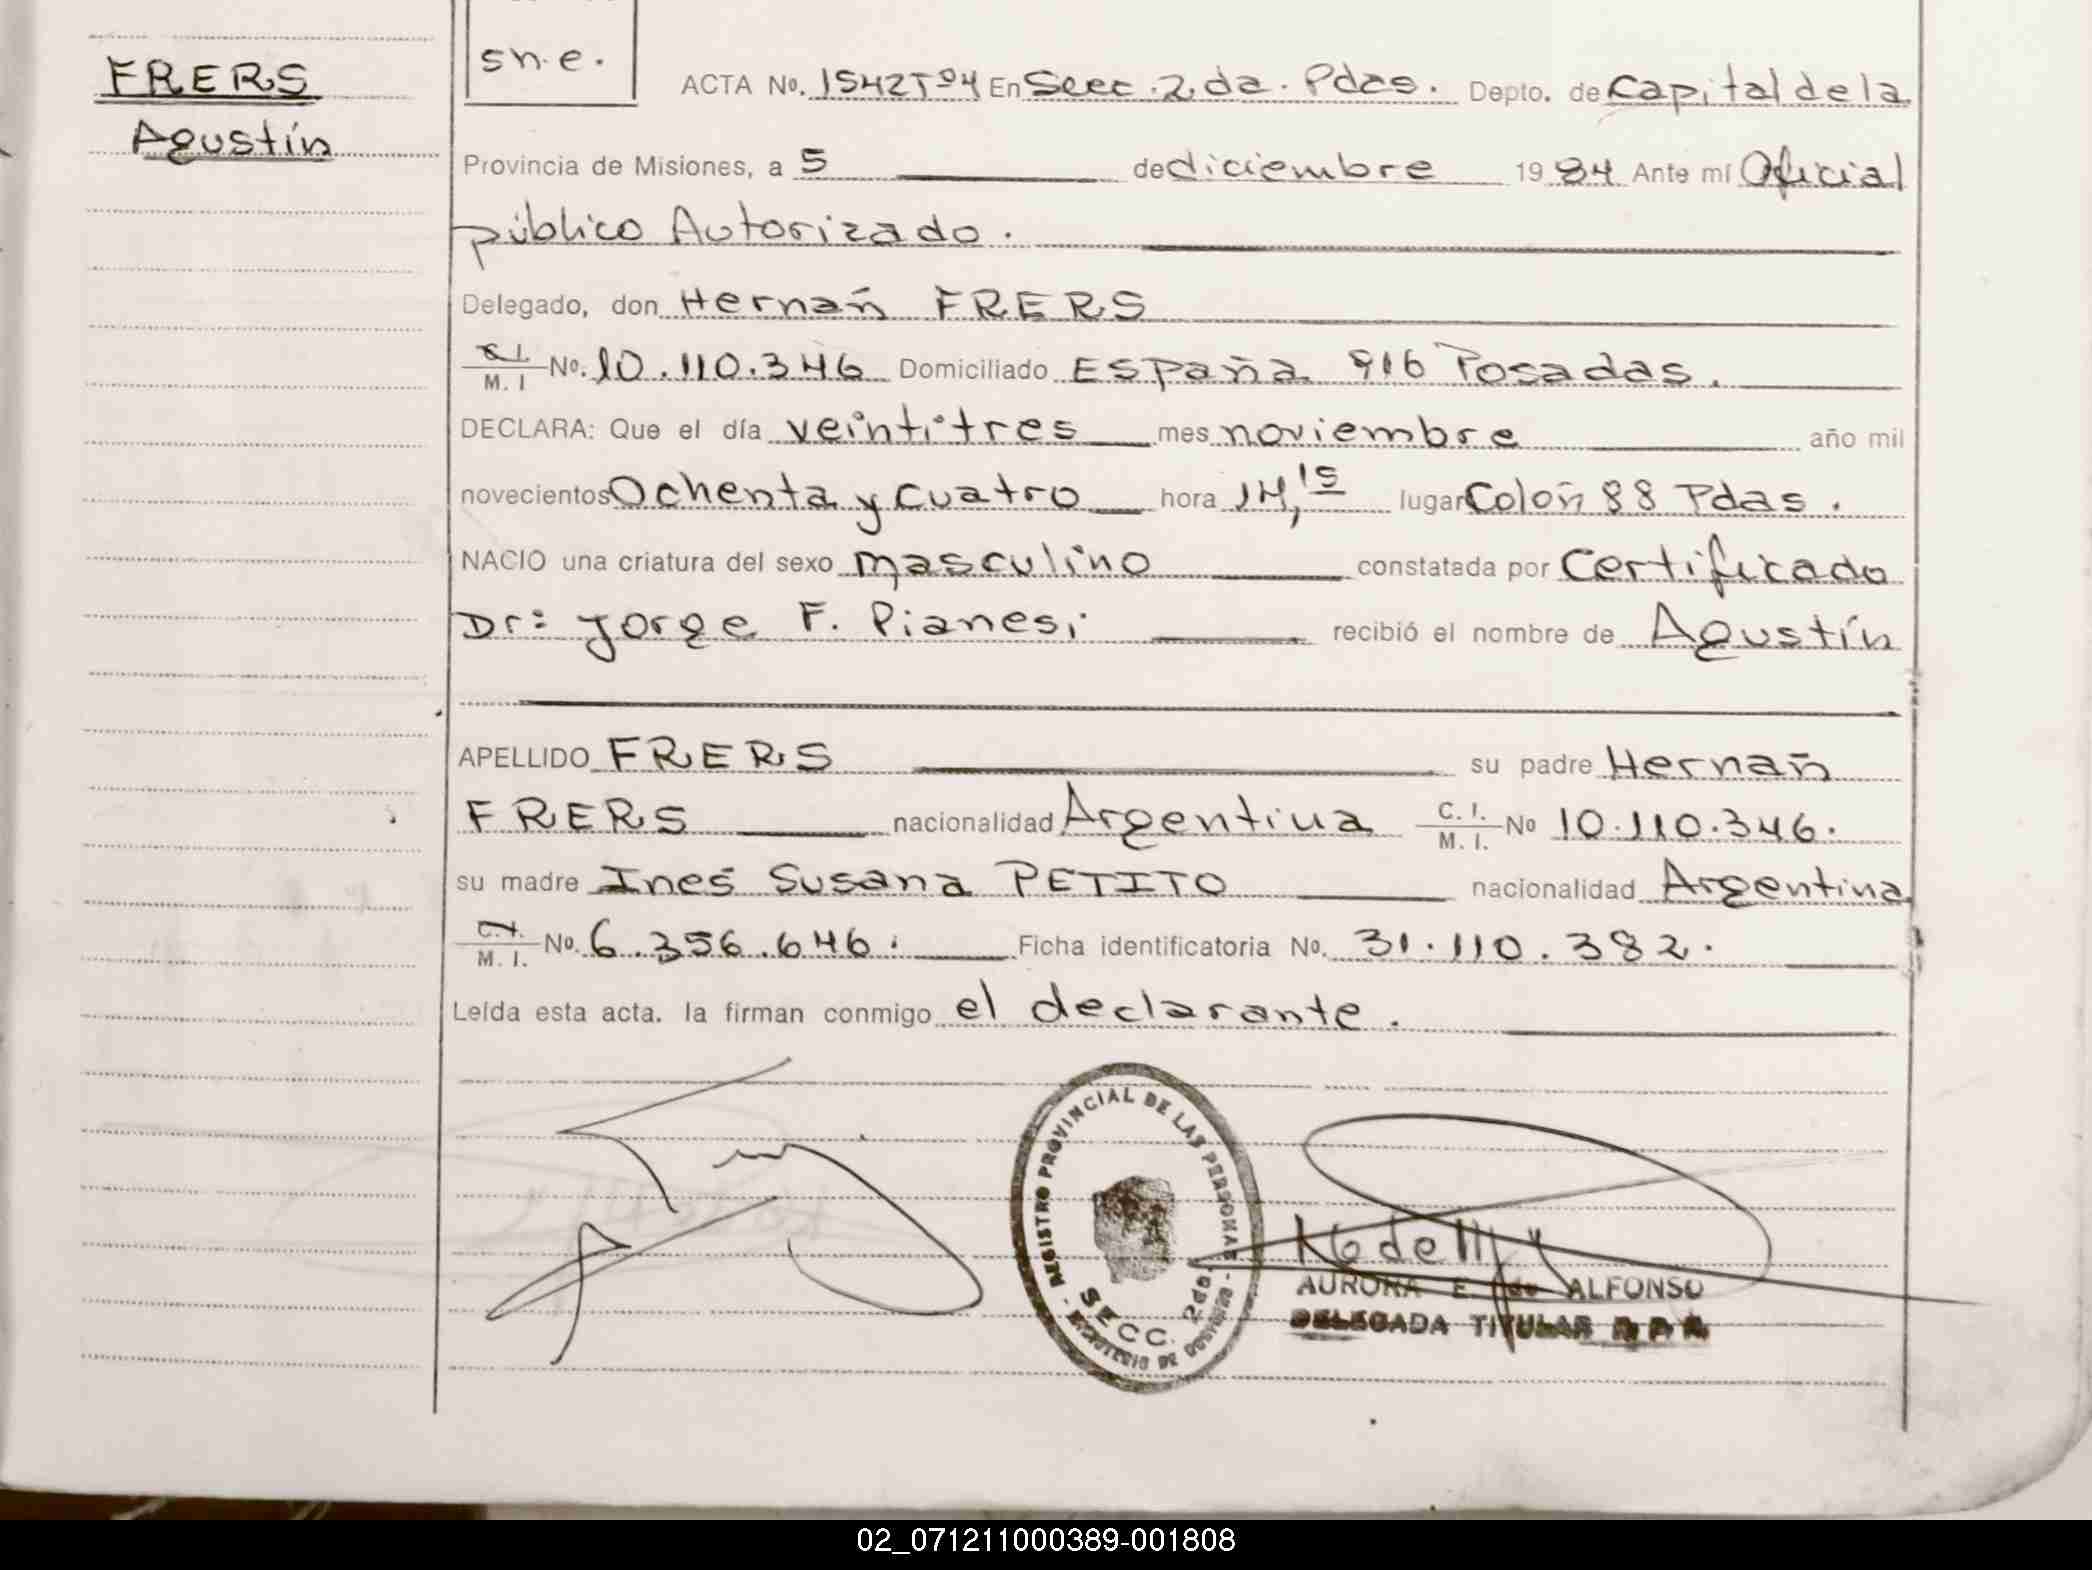 FRERS
Agustín
sn.e.
ACTA No. 1542Tº4 En Secc. 2da. Pdas. Depto. de Capital de la
Provincia de Misiones, a 5 de diciembre 1984 Ante mí Oficial
público Autorizado.
Delegado, don Hernán FRERS
C.I. M. I No. 10.110.346 Domiciliado España 916 Posadas.
DECLARA: Que el día veintitres mes noviembre año mil
novecientos Ochenta y cuatro hora 14,15 lugar Colón 88 Pdas.
NACIO una criatura del sexo masculino constatada por Certificado
Dr: Jorge F. Pianesi recibió el nombre de Agustín
APELLIDO FRERS su padre Hernán
FRERS nacionalidad Argentina C. I. M. I. No 10.110.346.
su madre Inés Susana PETITO nacionalidad Argentina
C.I. M. I. No. 6.356.646. Ficha identificatoria No. 31.110.382.
Leída esta acta. la firman conmigo el declarante.
REGISTRO PROVINCIAL DE LAS PERSONAS
SECC. 2da.
- MINISTERIO DE GOBIERNO -
AURORA E. de ALFONSO
DELEGADA TITULAR R P P
02_071211000389-001808